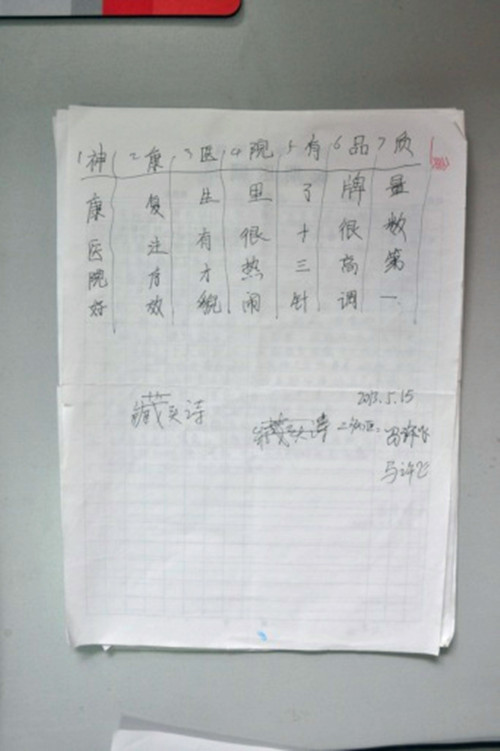 1神康医院好
2康复注有效
3医生有才貌
4院里很热闹
5有了十三针
6品牌很高调
7质量数第一
藏头诗
2013.5.15
藏头诗